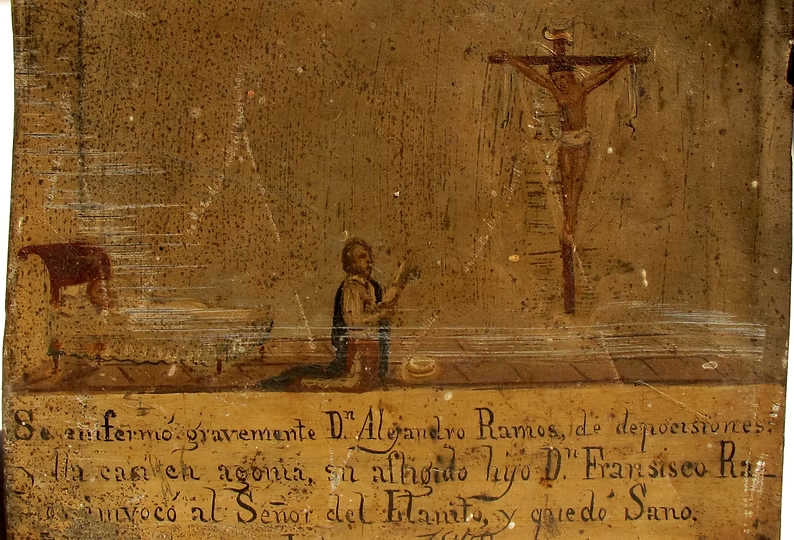 Se enfermó gravemente D.ⁿ Alejandro Ramos, de depocisiones:
y lla casi en agonia, su afligido hijo D.ⁿ Fransisco Ra_
mos invocó al Señor del Llanito, y quedó Sano.